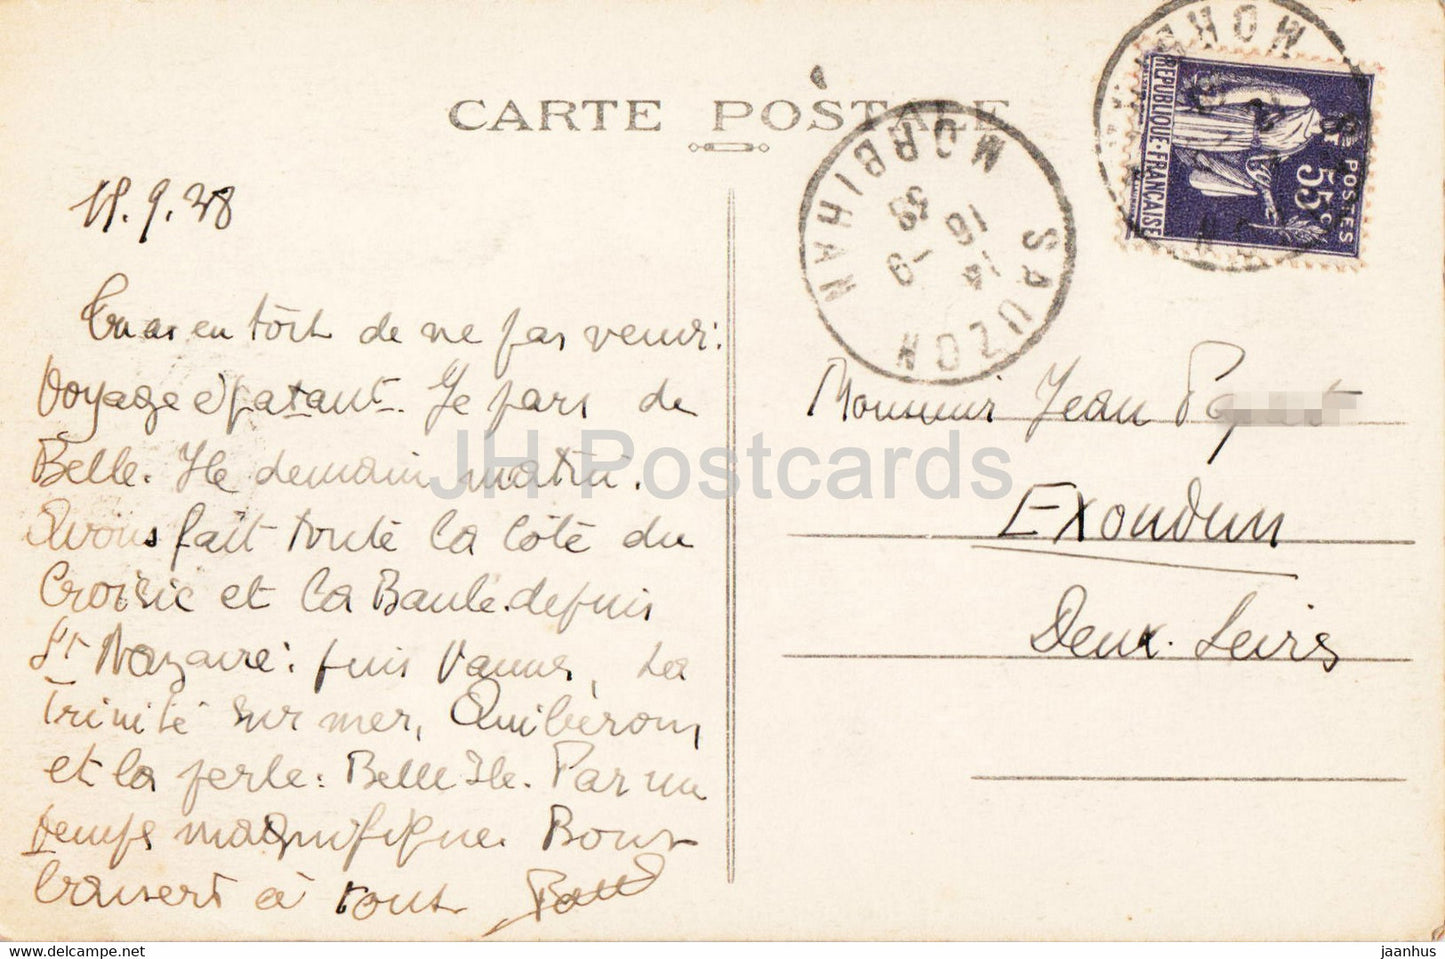 CARTE POSTALE
MORBIHAN
SAUZON
14
16
-9
39
RÉPUBLIQUE-FRANÇAISE
POSTES
55c
Tu as eu tort de ne pas venir:
Voyage épatant. Je pars de
Belle. Ile demain matin.
Avons fait toute la Côte du
Croisic et la Baule depuis
St Nazaire: puis Vannes, La
Trinité sur mer, Quibéron,
et la perle: Belle Ile. Par un
temps magnifique. Bons
baisers à tous
Monsieur Jean
Exoudun
Deux. Sèvres
JH Postcards
https://www.delcampe.net
jaanhus